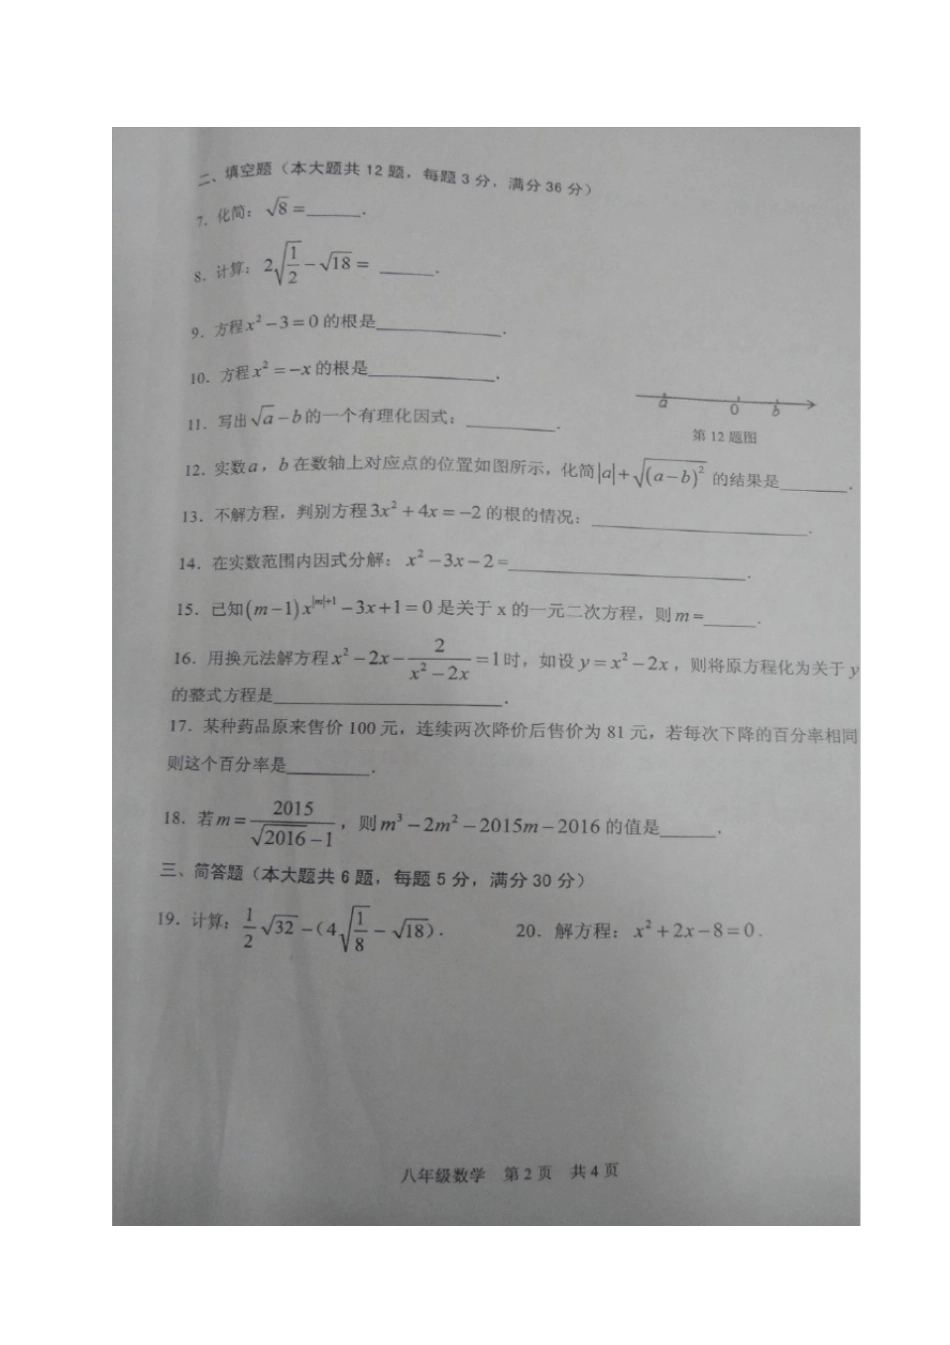 二、填空题（本大题共 12 题，每题 3 分，满分 36 分）
7. 化简：√8 =______.
8. 计算：2√(1/2) − √18 = ______.
9. 方程 x² − 3 = 0 的根是______.
10. 方程 x² = −x 的根是______.
11. 写出 √a − b 的一个有理化因式：______.
a 0 b
第 12 题图
12. 实数 a，b 在数轴上对应点的位置如图所示，化简 |a| + √((a − b)²) 的结果是______.
13. 不解方程，判别方程 3x² + 4x = −2 的根的情况：______.
14. 在实数范围内因式分解：x² − 3x − 2 =______.
15. 已知 (m − 1)x^(|m|+1) − 3x + 1 = 0 是关于 x 的一元二次方程，则 m =______.
16. 用换元法解方程 x² − 2x − 2/(x² − 2x) = 1 时，如设 y = x² − 2x，则将原方程化为关于 y
的整式方程是______.
17. 某种药品原来售价 100 元，连续两次降价后售价为 81 元，若每次下降的百分率相同
则这个百分率是______.
18. 若 m = 2015/(√2016 − 1)，则 m³ − 2m² − 2015m − 2016 的值是______.
三、简答题（本大题共 6 题，每题 5 分，满分 30 分）
19. 计算：1/2 √32 −（4√(1/8) − √18）. 20. 解方程：x² + 2x − 8 = 0.
八年级数学 第 2 页 共 4 页